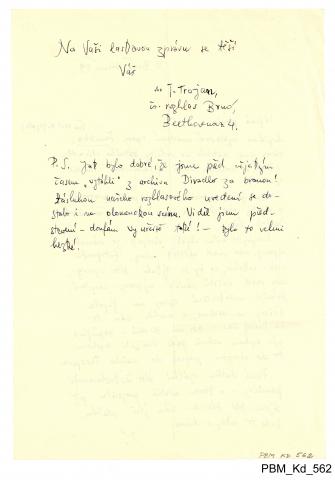 Na Vaši laskavou zprávu se těší
Váš
dr J. Trojan,
čs. rozhlas Brno,
Beethovenova 4.
P.S. Jak bylo dobré, že jsme před nějakým
časem "vytáhli" z archivu Divadlo za branou!
Zásluhou našeho rozhlasového uvedení se do-
stalo i na olomouckou scénu. Viděl jsem před-
stavení - doufám Vy určitě také! - bylo to velmi
hezké.
PBM_Kd 562
PBM_Kd_562